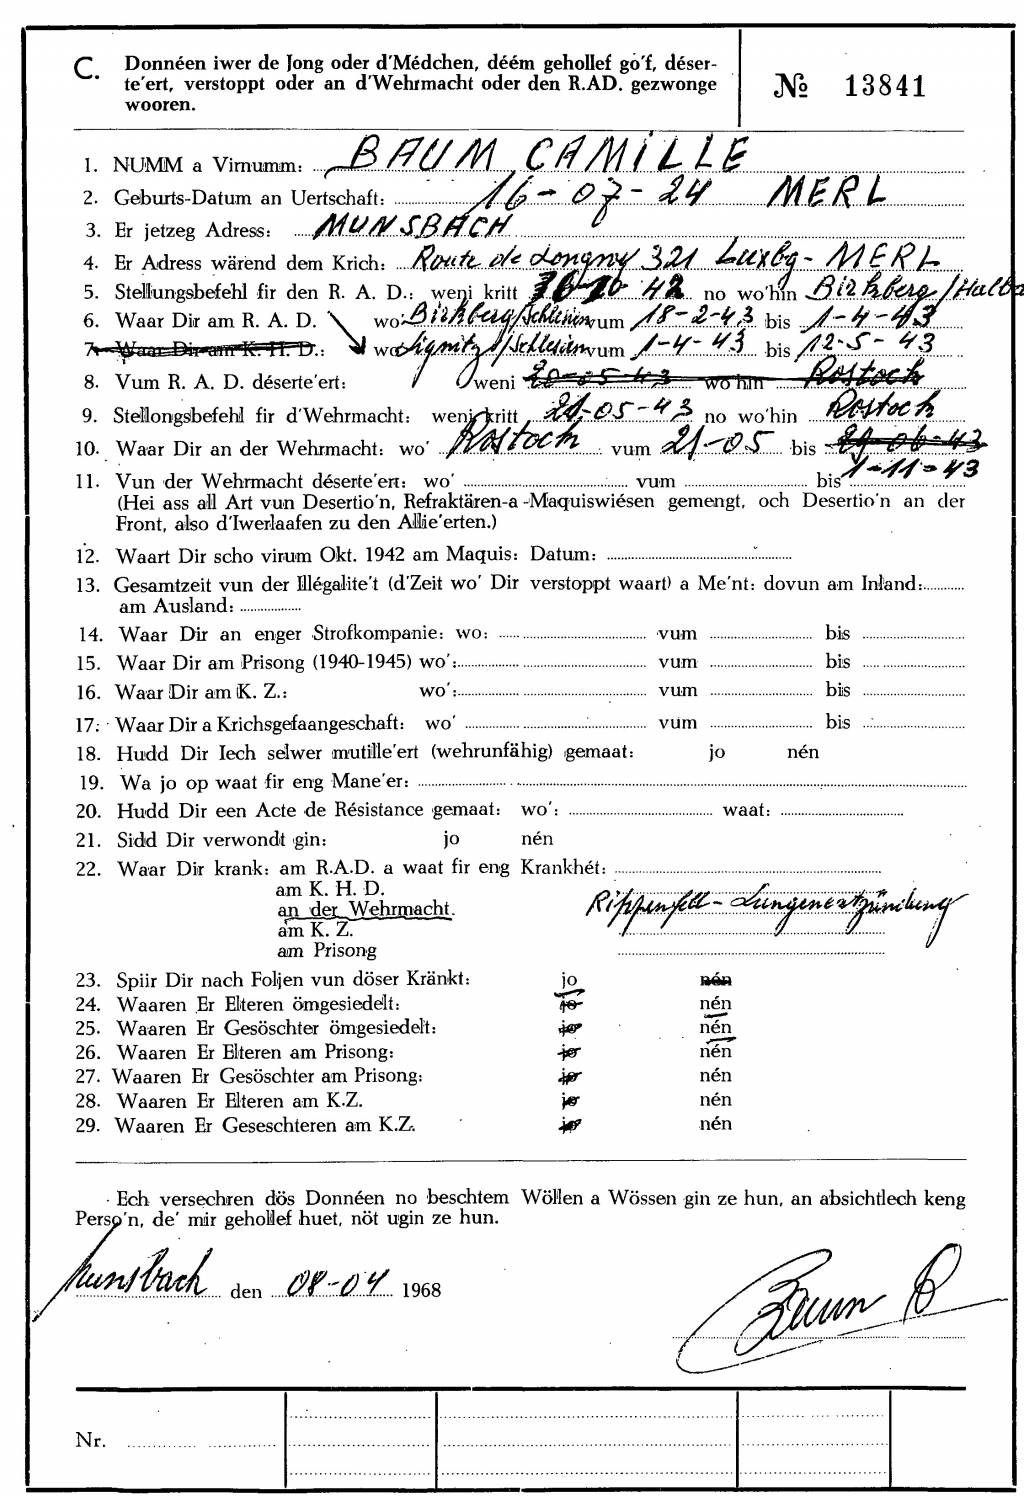 C. Donnéen iwer de Jong oder d'Médchen, déém gehollef go'f, déser-
te'ert, verstoppt oder an d'Wehrmacht oder den R.AD. gezwonge
wooren.
№ 13841
1. NUMM a Virnumm: BAUM CAMILLE
2. Geburts-Datum an Uertschaft: 16-07-24 MERL
3. Er jetzeg Adress: MUNSBACH
4. Er Adress wärend dem Krich: Route de Longwy 321 Luxbg-MERL
5. Stellungsbefehl fir den R. A. D.: weni kritt 42 no wo'hin Birkberg/Halba
6. Waar Dir am R. A. D. wo' Birkberg/Schlesien vum 18-2-43 bis 1-4-43
7. Waar Dir am K. H. D.: wo' Lignitz/Schlesien vum 1-4-43 bis 12-5-43
8. Vum R. A. D. déserte'ert: weni 20-05-43 wo'hin Rostock
9. Stellongsbefehl fir d'Wehrmacht: weni kritt 21-05-43 no wo'hin Rostock
10. Waar Dir an der Wehrmacht: wo' Rostock vum 21-05 bis 29-06-43
1-11-43
11. Vun der Wehrmacht déserte'ert: wo' vum bis
(Hei ass all Art vun Desertio'n, Refraktären-a-Maquiswiésen gemengt, och Desertio'n an der
Front, also d'Iwerlaafen zu den Allie'erten.)
12. Waart Dir scho virum Okt. 1942 am Maquis: Datum:
13. Gesamtzeit vun der Illégalite't (d'Zeit wo' Dir verstoppt waart) a Me'nt: dovun am Inland:
am Ausland:
14. Waar Dir an enger Strofkompanie: wo: vum bis
15. Waar Dir am Prisong (1940-1945) wo': vum bis
16. Waar Dir am K. Z.: wo': vum bis
17. Waar Dir a Krichsgefaangeschaft: wo' vum bis
18. Hudd Dir Iech selwer mutille'ert (wehrunfähig) gemaat: jo nén
19. Wa jo op waat fir eng Mane'er:
20. Hudd Dir een Acte de Résistance gemaat: wo': waat:
21. Sidd Dir verwondt gin: jo nén
22. Waar Dir krank: am R.A.D. a waat fir eng Krankhét:
am K. H. D.
an der Wehrmacht. Rippenfell-Lungenentzündung
am K. Z.
am Prisong
23. Spiir Dir nach Foljen vun döser Kränkt: jo nén
24. Waaren Er Elteren ömgesiedelt: jo nén
25. Waaren Er Gesöschter ömgesiedelt: jo nén
26. Waaren Er Elteren am Prisong: jo nén
27. Waaren Er Gesöschter am Prisong: jo nén
28. Waaren Er Elteren am K.Z. jo nén
29. Waaren Er Geseschteren am K.Z. jo nén
Ech versechren dös Donnéen no beschtem Wöllen a Wössen gin ze hun, an absichtlech keng
Perso'n, de' mir gehollef huet, nöt ugin ze hun.
Munsbach den 08-04 1968
Baum C
Nr.